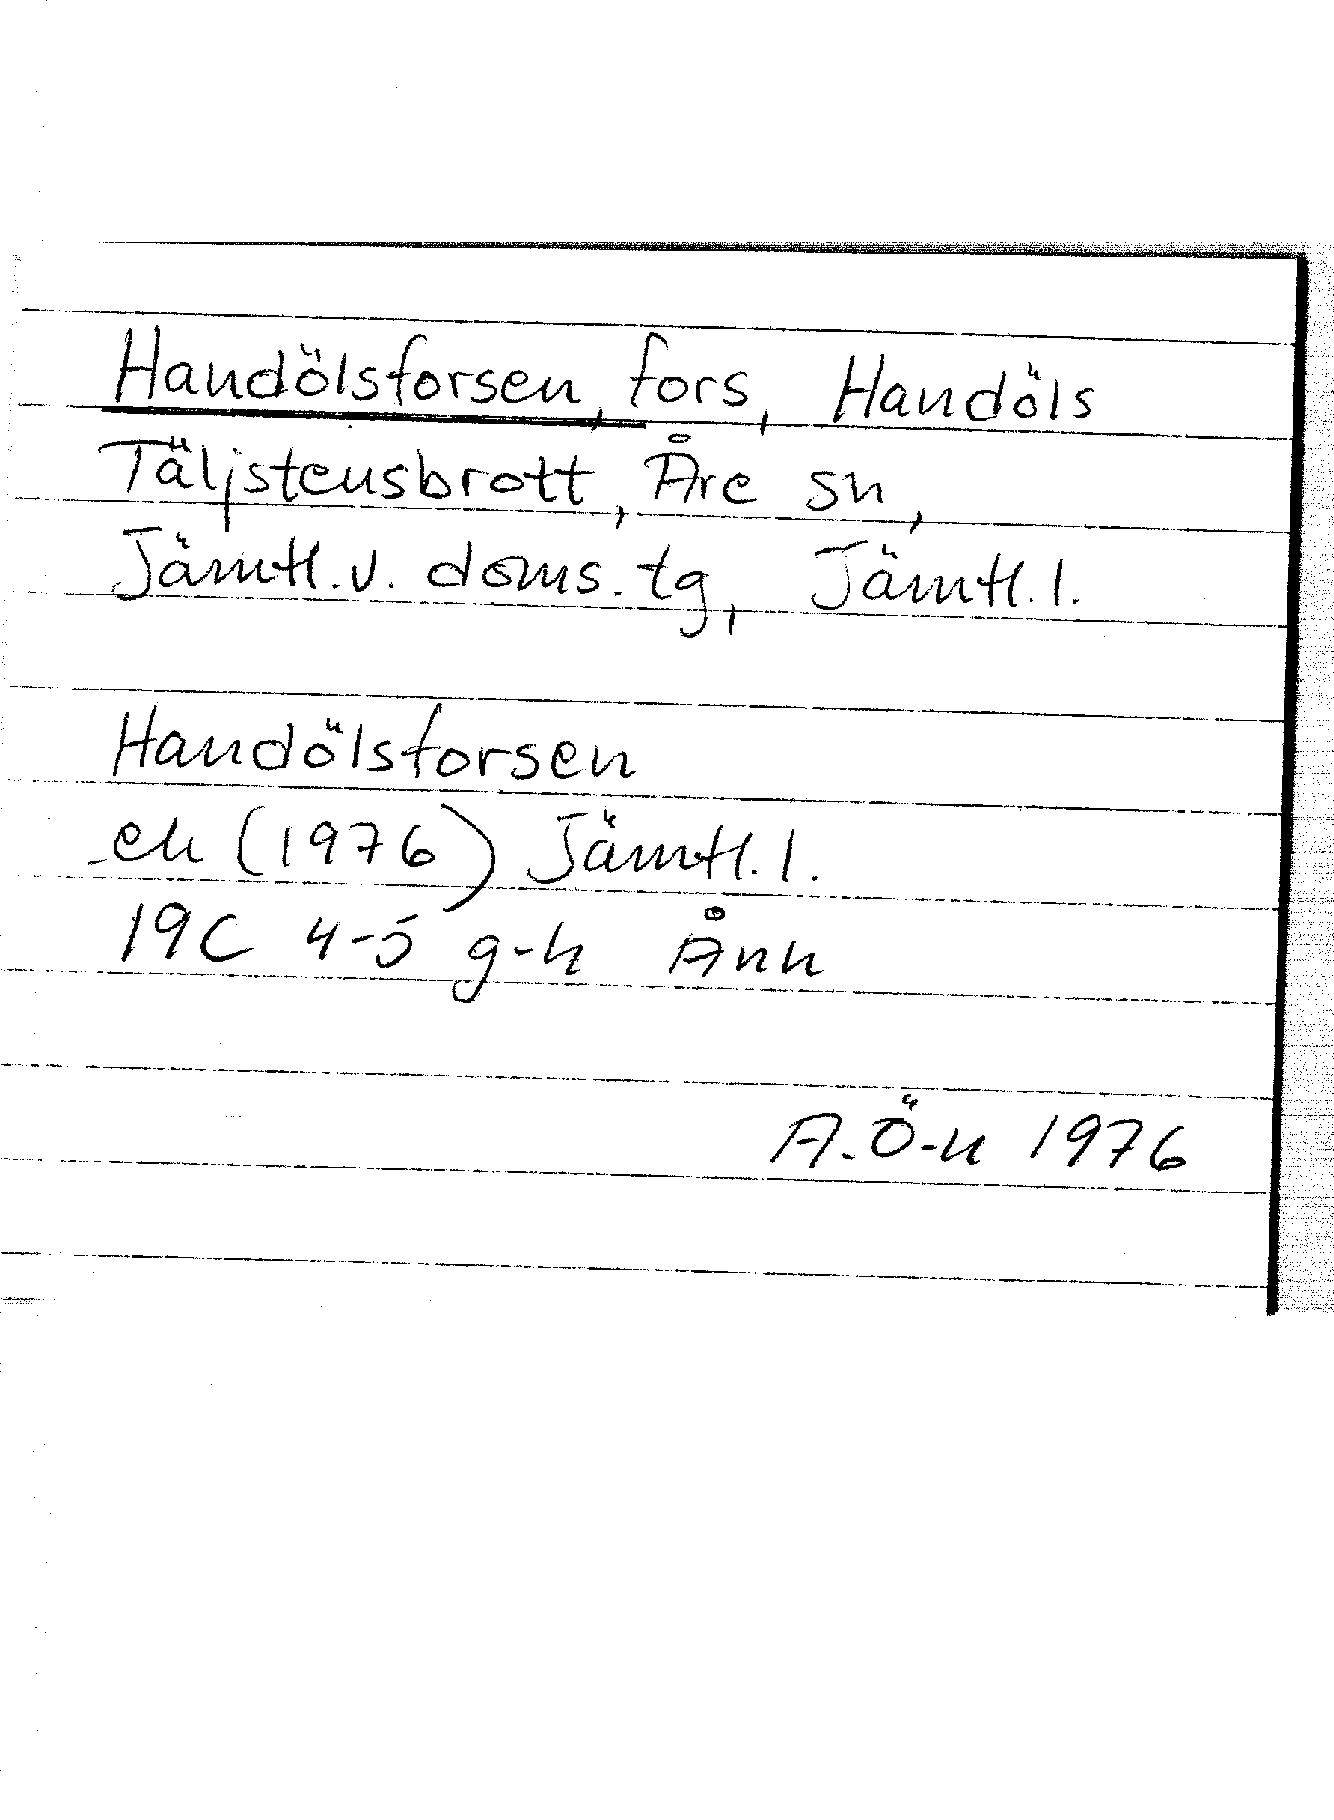 Handölsforsen, fors, Handöls
Täljstensbrott, Åre sn,
Jämtl. v. doms. tg, Jämtl. l.
Handölsforsen
ek (1976) Jämtl. l.
19C 4-5 g-h Ånn
A. Ö-n 1976